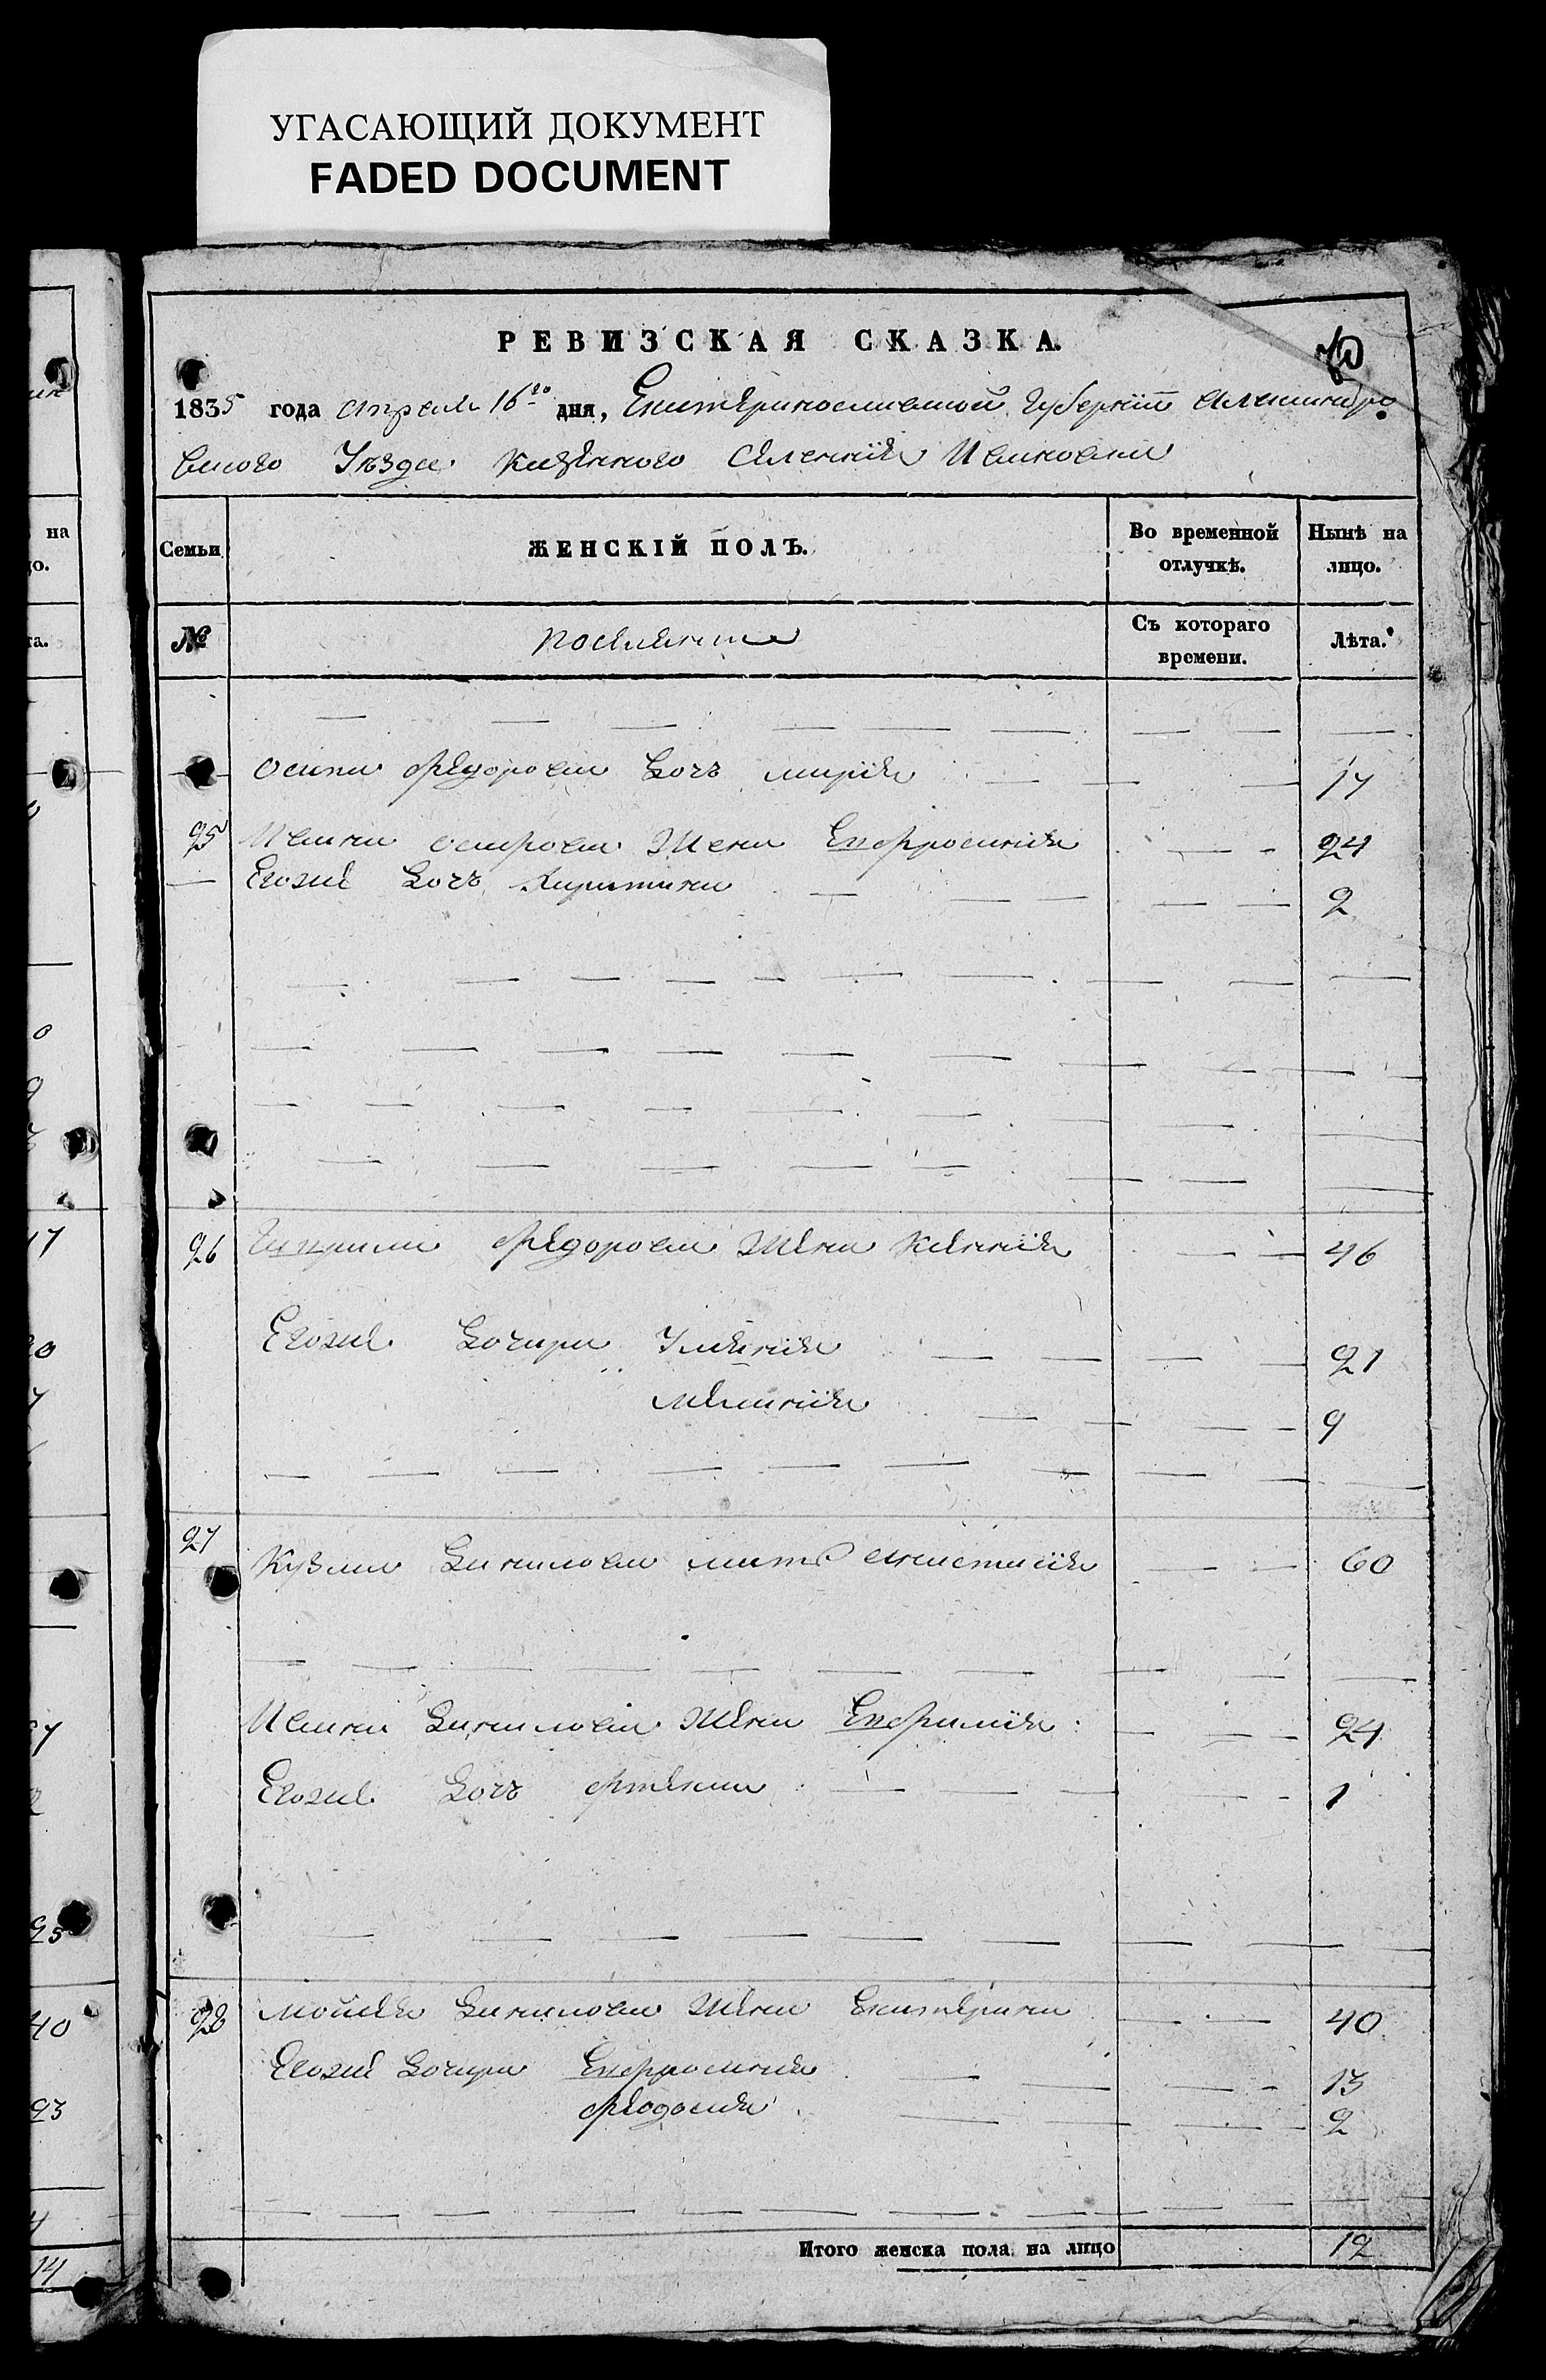 УГАСАЮЩИЙ ДОКУМЕНТ
FADED DOCUMENT
РЕВИЗСКАЯ СКАЗКА.
1835 года апреля 16го дня, Екатеринославской Губернии Александро
вского Уѣзда казенного Селения Ивановки
на
Семьи
ЖЕНСКІЙ ПОЛЪ.
Во временной отлучкѣ.
Нынѣ на лицо.
№
поселяне
Съ котораго времени.
Лѣта.
Осипа Федорова Дочь мария 17
25 Ивана Жена Евфросиния 24
Егоже Дочь Харитина 2
26 Федорова Жена Ксения 46
Егоже Дочери Улияния 21
Мелания 9
27 Кузмы Данилова мать анастасия 60
Ивана Данилова Жена Евфимия 24
Егоже Дочь 1
28 Мойсея Данилова Жена Екатерина 40
Егоже Дочери Евфросиния 13
Феодосия 2
Итого женска пола на лицо 12